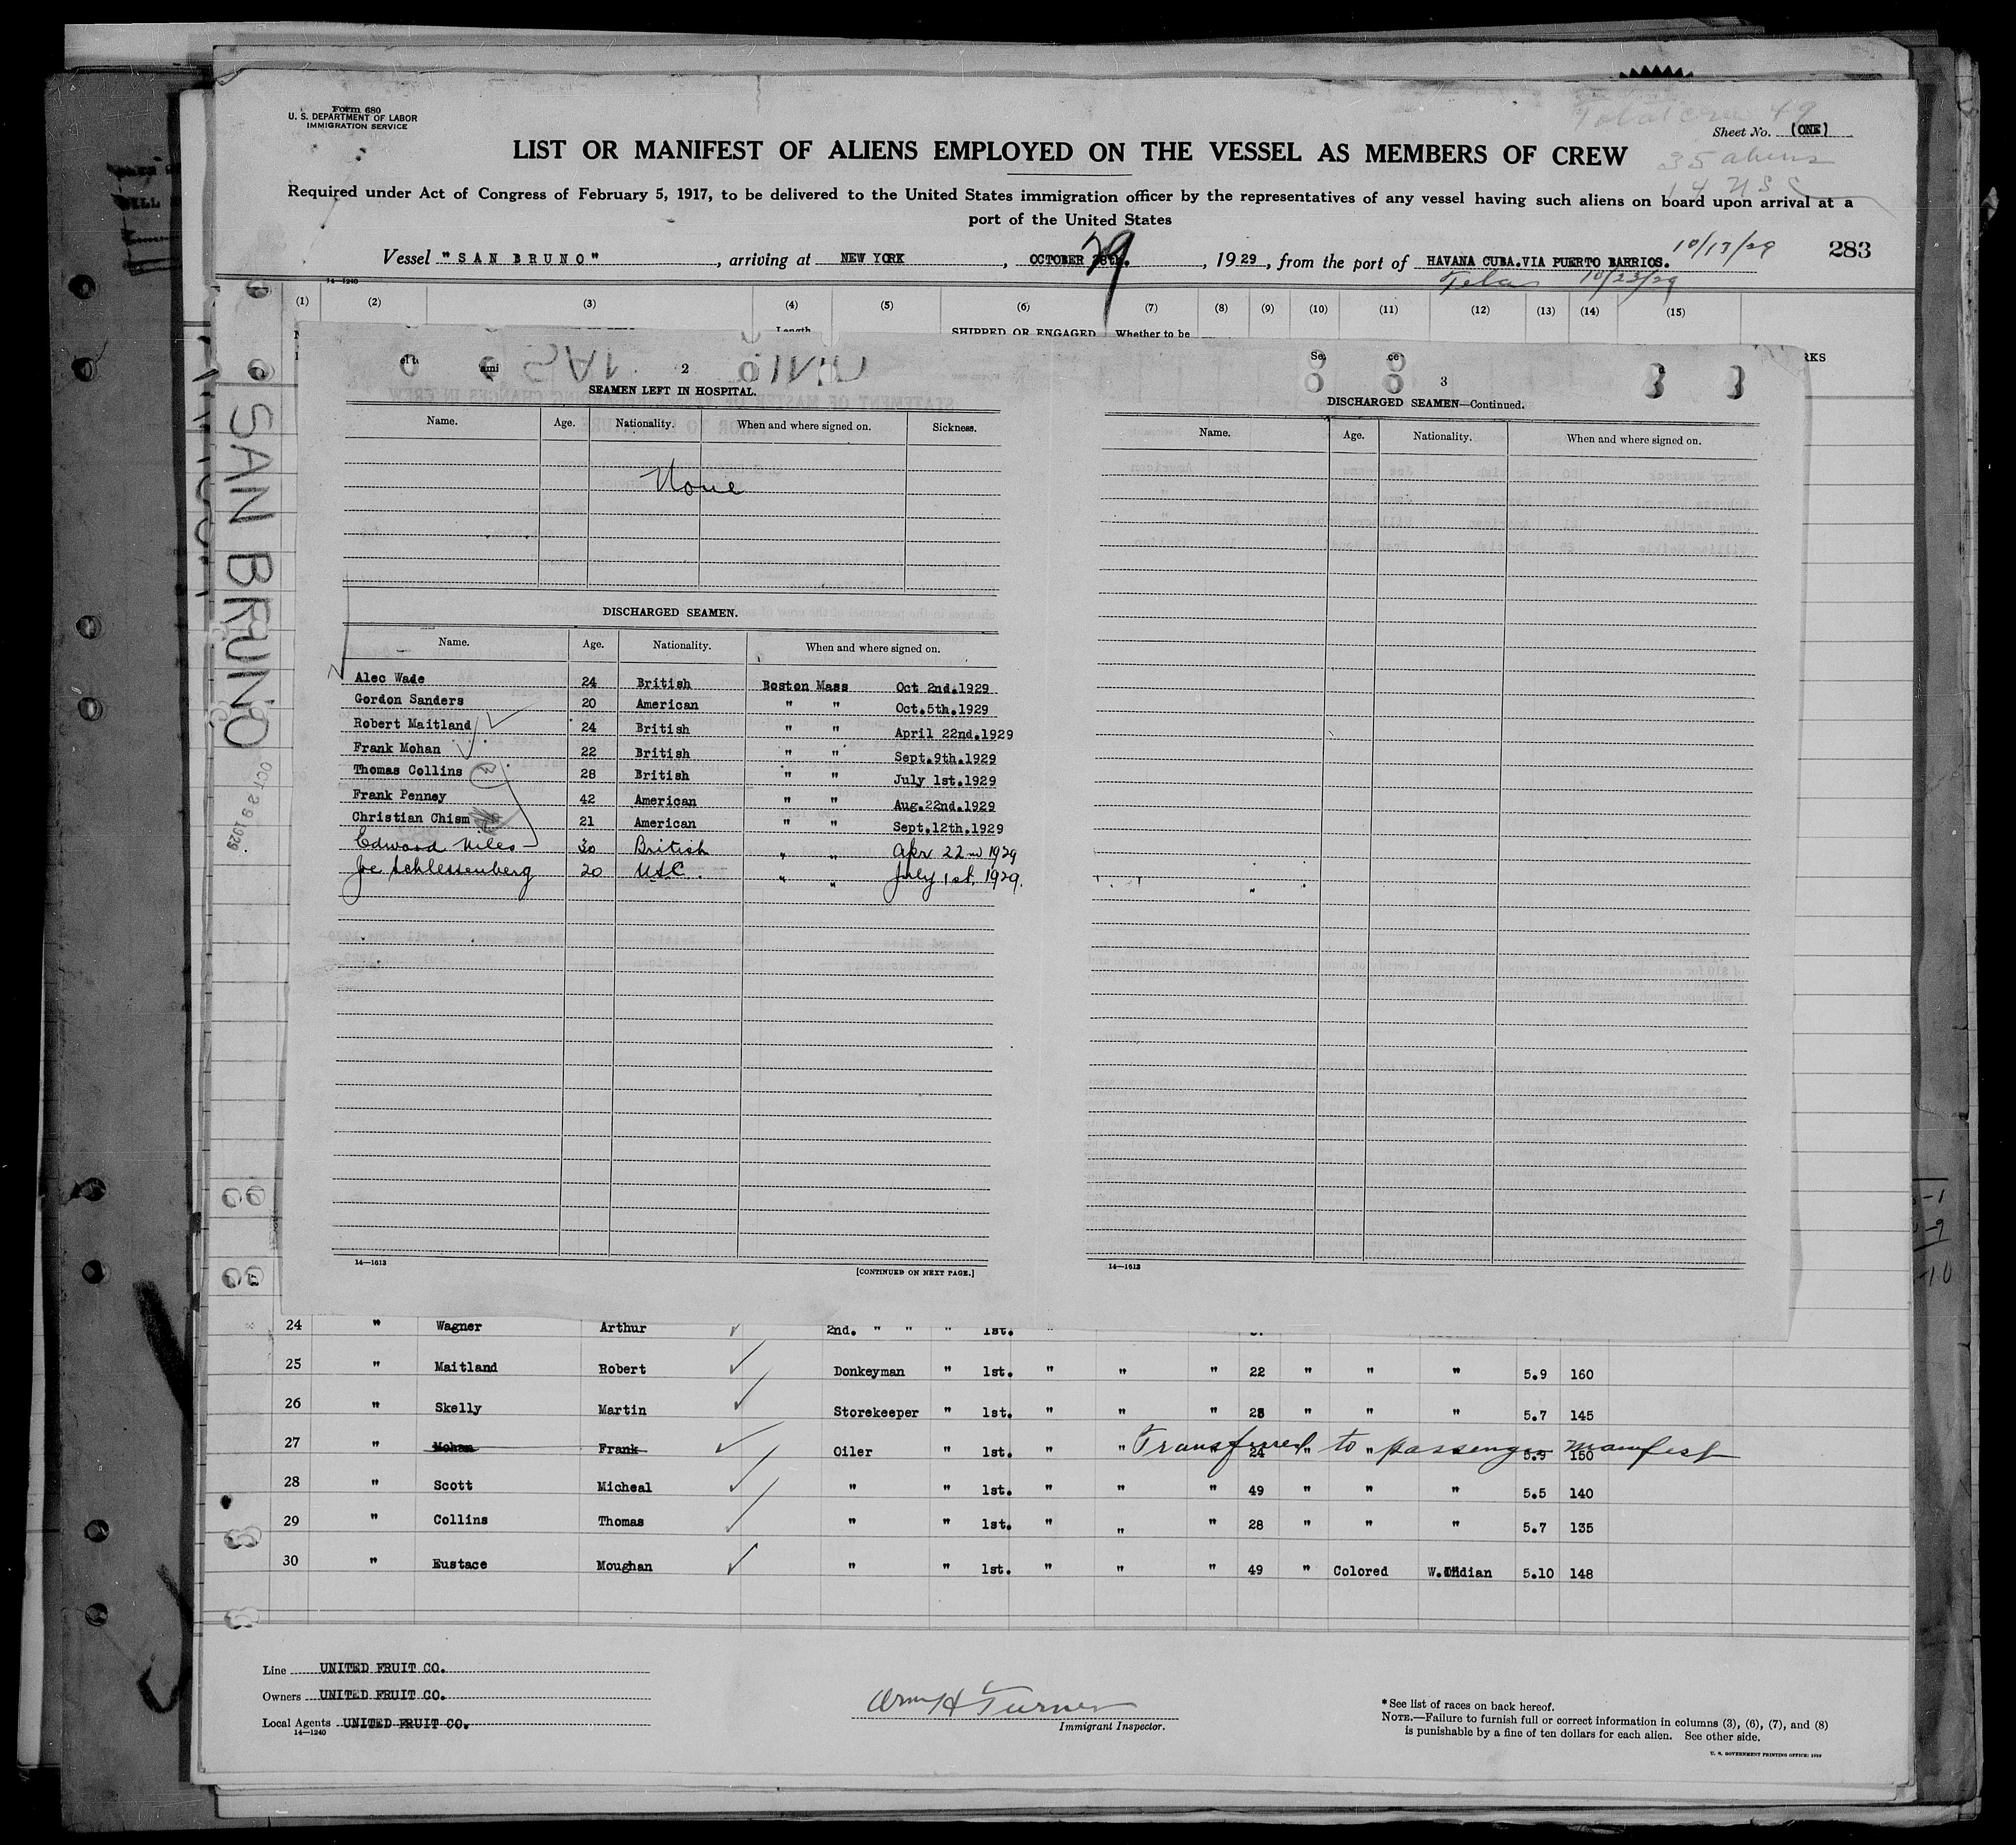 Form 680
U. S. DEPARTMENT OF LABOR
IMMIGRATION SERVICE
Total crew 49
Sheet No. (ONE)
LIST OR MANIFEST OF ALIENS EMPLOYED ON THE VESSEL AS MEMBERS OF CREW
35 aliens
14 USC
Required under Act of Congress of February 5, 1917, to be delivered to the United States immigration officer by the representatives of any vessel having such aliens on board upon arrival at a
port of the United States
Vessel "SAN BRUNO", arriving at NEW YORK, OCTOBER 29, 1929, from the port of HAVANA CUBA.VIA PUERTO BARRIOS. 10/17/29 283
Tela 10/23/29
14—1240
(1) (2) (3) (4) (5) (6) (7) (8) (9) (10) (11) (12) (13) (14) (15)
Length SHIPPED OR ENGAGED Whether to be
RKS
2
SEAMEN LEFT IN HOSPITAL.
Name. Age. Nationality. When and where signed on. Sickness.
None
DISCHARGED SEAMEN.
Name. Age. Nationality. When and where signed on.
Alec Wade 24 British Boston Mass Oct 2nd.1929
Gordon Sanders 20 American " " Oct.5th.1929
Robert Maitland 24 British " " April 22nd.1929
Frank Mohan 22 British " " Sept.9th.1929
Thomas Collins 28 British " " July 1st.1929
Frank Penney 42 American " " Aug.22nd.1929
Christian Chism 21 American " " Sept.12th.1929
Edward Niles 30 British " " Apr 22nd 1929
Joe Schlessenberg 20 USC. " " July 1st, 1929.
14—1613
[CONTINUED ON NEXT PAGE.]
3
DISCHARGED SEAMEN—Continued.
Name. Age. Nationality. When and where signed on.
14—1613
SAN BRUNO
OCT 29 1929
24 " Wagner Arthur 2nd. " " " 1st. "
25 " Maitland Robert Donkeyman " 1st. " " " 22 " " " 5.9 160
26 " Skelly Martin Storekeeper " 1st. " " " 28 " " " 5.7 145
27 " Mohan Frank Oiler " 1st. " " " 24 " " 5.9 150
Transferred to passenger manifest
28 " Scott Micheal " " 1st. " " " 49 " " " 5.5 140
29 " Collins Thomas " " 1st. " " " 28 " " " 5.7 135
30 " Eustace Moughan " " 1st. " " " 49 " Colored W.Indian 5.10 148
Line UNITED FRUIT CO.
Owners UNITED FRUIT CO.
Local Agents UNITED FRUIT CO.
14—1240
H Turner
Immigrant Inspector.
*See list of races on back hereof.
NOTE.—Failure to furnish full or correct information in columns (3), (6), (7), and (8)
is punishable by a fine of ten dollars for each alien. See other side.
U. S. GOVERNMENT PRINTING OFFICE: 1929